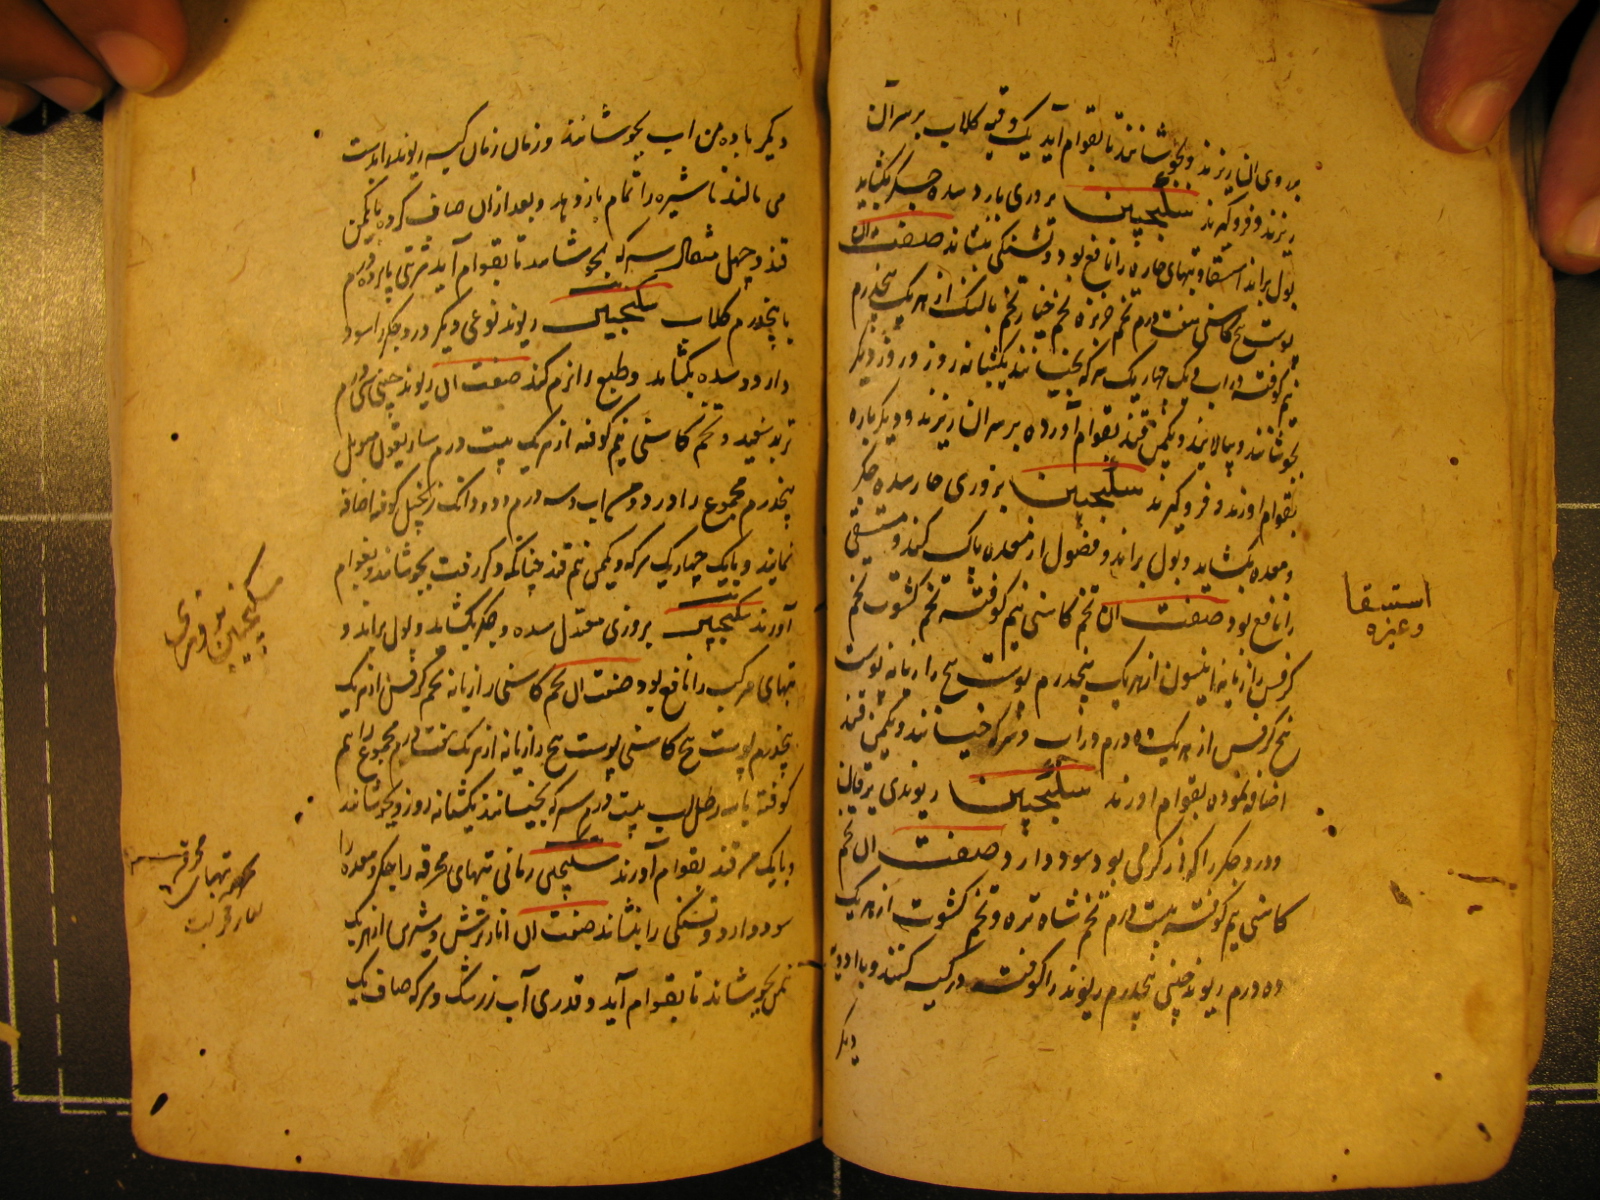 بروی آن ریزند و بجوشانند تا بقوام آید یک وقیه کلاب بر سر آن
ریزند و فروکیرند سکنجبین بزوری بارد سده جکر بکشاید
بول براند استسقا و تبهای حاره را نافع بود و تشنکی بنشاند صنعت آن
پوست بیخ کاسنی بیست درم تخم خربزه تخم خیار تخم بالنک از هریک پنجدرم
نیم کوفته در آب و یک چهاریک سرکه بخیسانند یکشبانه روز و روز دیکر
بجوشانند و بپالایند و یکمن قند بقوام آورده بر سر آن ریزند و دیکرباره
بقوام اورند و فروکیرند سکنجبین بزوری حار سده جکر
و معده بکشاید و بول براند و فضول از معده پاک کند و مستسقی
را نافع بود صنعت آن تخم کاسنی نیم کوفته تخم کشوت تخم
کرفس رازیانه انیسون از هریک پنجدرم پوست بیخ رازیانه پوست
بیخ کرفس از هریک ده درم در آب و سرکه خیسانند و یکمن قند
اضافه نموده بقوام اورند سکنجبین ریوندی یرقان
و درد جکر را که از کرمی بود سود دارد صنعت آن تخم
کاسنی نیم کوفته بیست درم تخم شاه تره و تخم کشوت از هریک
ده درم ریوند چینی پنجدرم ریوند را کوفته در کیسه کنند و با ادویه
دیکر
استسقا
وغیره
دیکر با ده من اب بجوشانند و زمان زمان کیسه ریوند را بدست
می مالند تا شیره را تمام باز دهد و بعد از ان صاف کرده با یکمن
قند و چهل مثقال سرکه بجوشانند تا بقوام آید شربتی پانزده درم
با پنجدرم کلاب سکنجبین ریوند نوعی دیکر درد جکر را سود
دارد و سده بکشاید و طبع را نرم کند صنعت آن ریوند چینی سی درم
تربد سفید و تخم کاسنی نیم کوفته از هریک بیست درم
پنجدرم مجموع را در دو من اب و سه درم و دو دانک زنجبیل کوفته اضافه
نمایند و با یک چهاریک سرکه و یکمن نیم قند چنانکه ذکر رفت بجوشانند و بقوام
آورند سکنجبین بزوری معتدل سده و جکر بکشاید و بول براند و
تبهای مرکب را نافع بود صنعت آن تخم کاسنی رازیانه تخم کرفس از هریک
پنجدرم پوست بیخ کاسنی پوست بیخ رازیانه از هریک هفت درم مجموع را نیم
کوفته باب رطل اب بیست درم سرکه بخیسانند یکشبانه روز و بجوشانند
و با یک من قند بقوام آورند سکنجبین رمانی تبهای محرقه را جکر و معده را
سود دارد و تشنکی را بنشاند صنعت آن انار ترش و شیرین از هریک
نیمن بجوشاند تا بقوام آید و قدری آب زرشک و سرکه صاف یک
سکنجبین بزوری